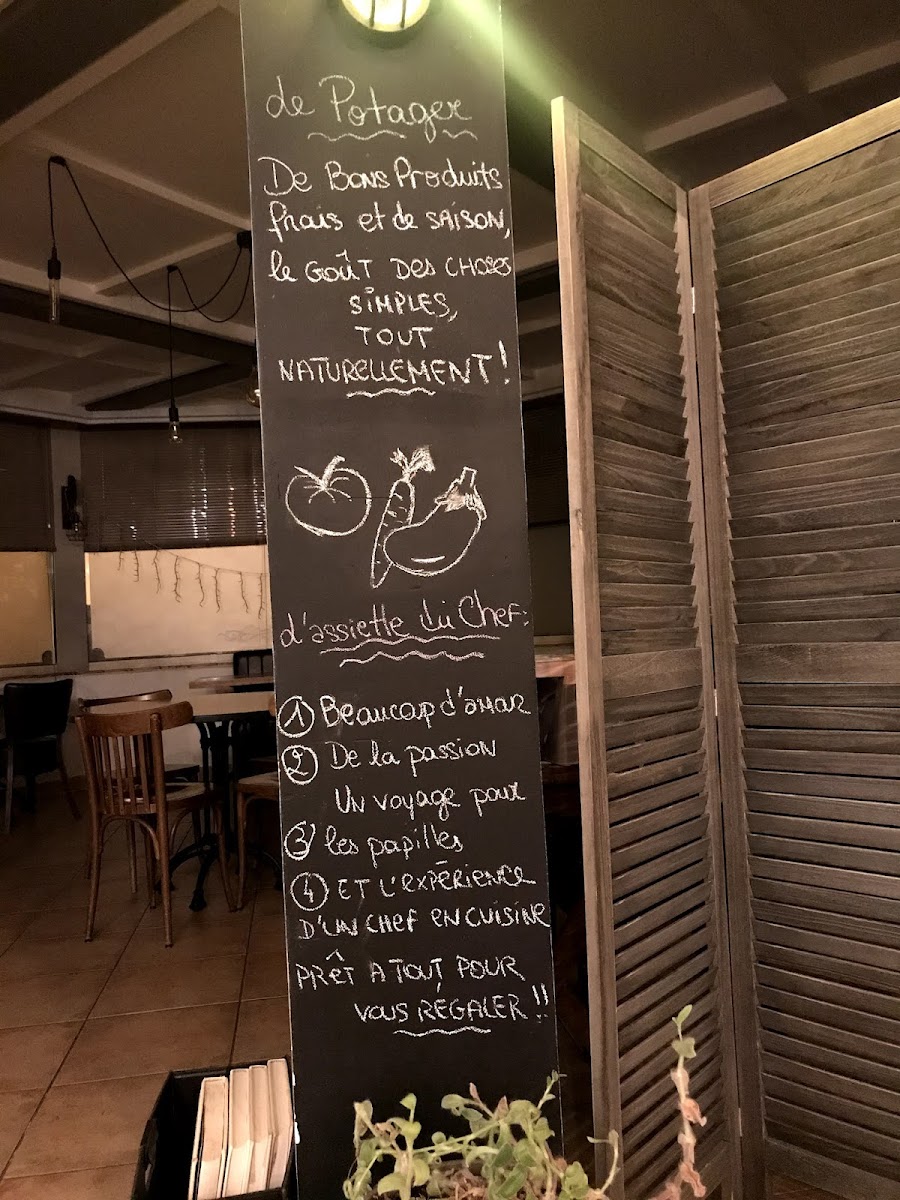 de Potager
De Bons Produits
frais et de SAISON,
le GOÛT DES CHOSES
SIMPLES,
TOUT
NATURELLEMENT !
d'assiette du Chef :
① Beaucoup d'amour
② De la passion
Un voyage pour
③ les papilles
④ ET L'EXPÉRIENCE
D'UN CHEF EN CUISINE
PRÊT A TOUT POUR
VOUS RÉGALER !!